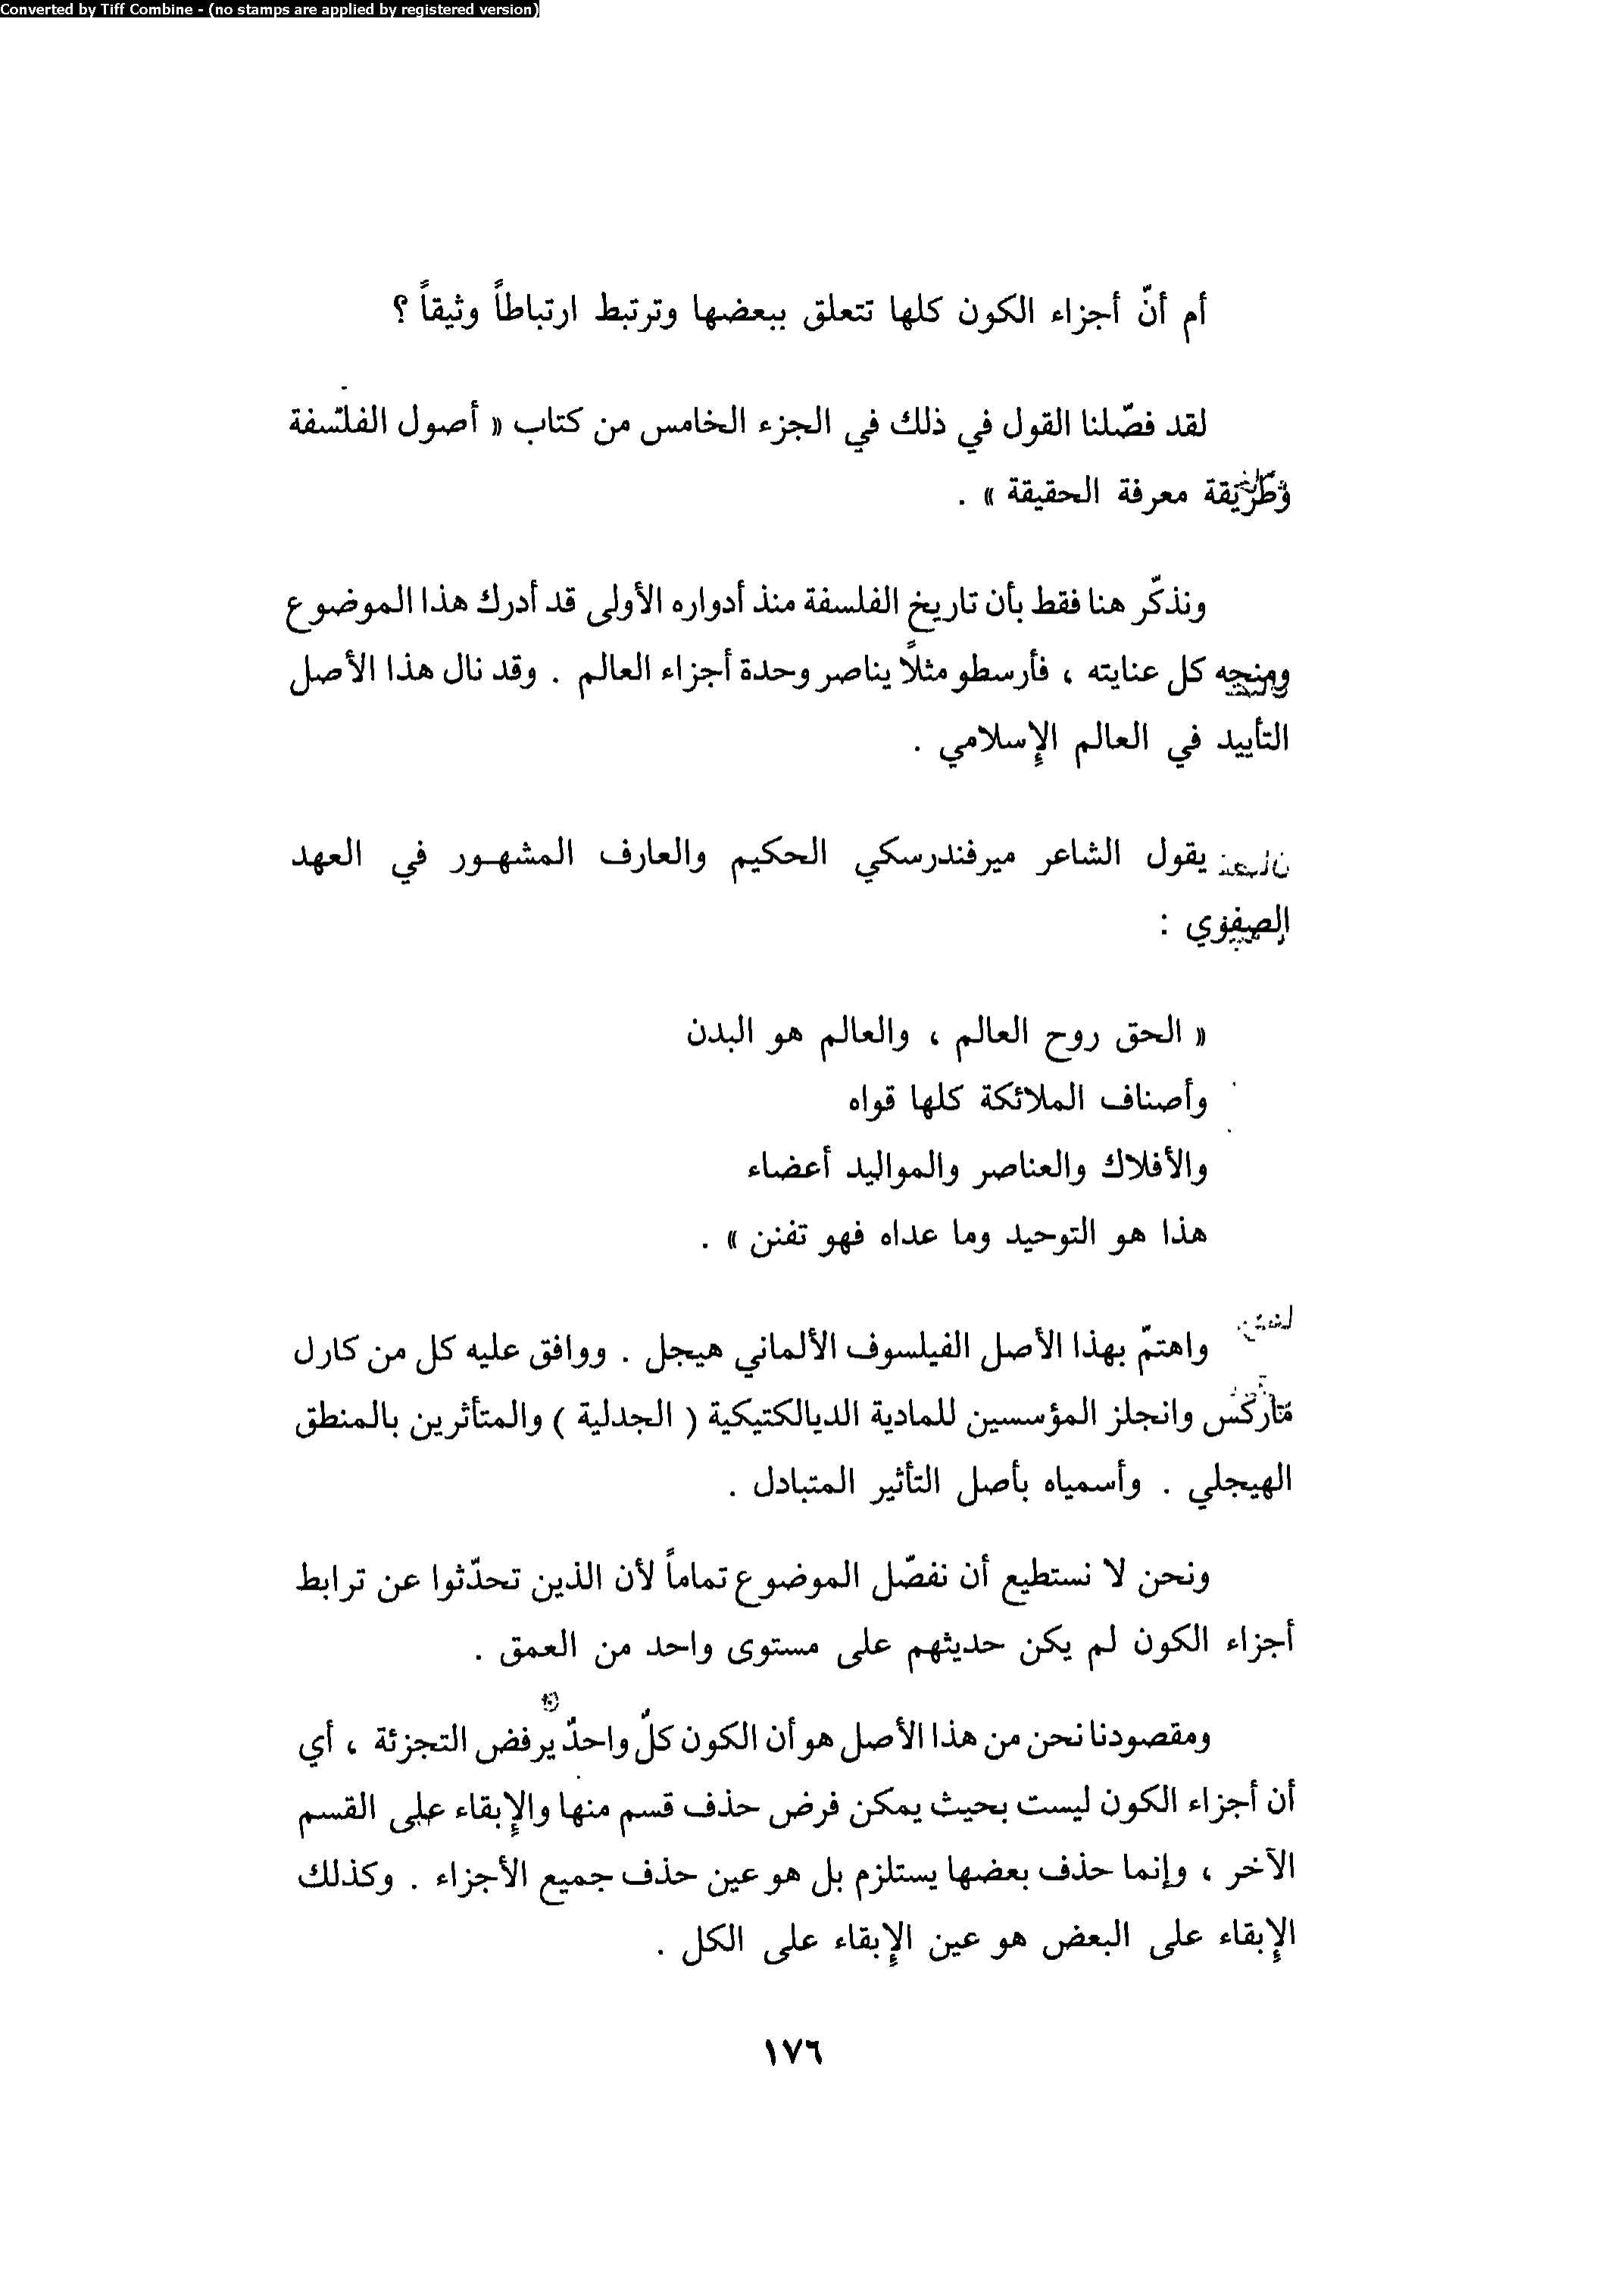 Converted by Tiff Combine - (no stamps are applied by registered version)
أم أنّ أجزاء الكون كلها تتعلق ببعضها وترتبط ارتباطاً وثيقاً ؟
لقد فصّلنا القول في ذلك في الجزء الخامس من كتاب « أصول الفلسفة
وطريقة معرفة الحقيقة » .
ونذكّر هنا فقط بأن تاريخ الفلسفة منذ أدواره الأولى قد أدرك هذا الموضوع
ومنحه كل عنايته ، فأرسطو مثلاً يناصر وحدة أجزاء العالم . وقد نال هذا الأصل
التأييد في العالم الإسلامي .
يقول الشاعر ميرفندرسكي الحكيم والعارف المشهور في العهد
الصفوي :
« الحق روح العالم ، والعالم هو البدن
وأصناف الملائكة كلها قواه
والأفلاك والعناصر والمواليد أعضاء
هذا هو التوحيد وما عداه فهو تفنن » .
واهتمّ بهذا الأصل الفيلسوف الألماني هيجل . ووافق عليه كل من كارل
ماركس وانجلز المؤسسين للمادية الديالكتيكية ( الجدلية ) والمتأثرين بالمنطق
الهيجلي . وأسمياه بأصل التأثير المتبادل .
ونحن لا نستطيع أن نفصّل الموضوع تماماً لأن الذين تحدّثوا عن ترابط
أجزاء الكون لم يكن حديثهم على مستوى واحد من العمق .
ومقصودنا نحن من هذا الأصل هو أن الكون كلٌ واحدٌ يرفض التجزئة ، أي
أن أجزاء الكون ليست بحيث يمكن فرض حذف قسم منها والإبقاء على القسم
الآخر ، وإنما حذف بعضها يستلزم بل هو عين حذف جميع الأجزاء . وكذلك
الإبقاء على البعض هو عين الإبقاء على الكل .
١٧٦